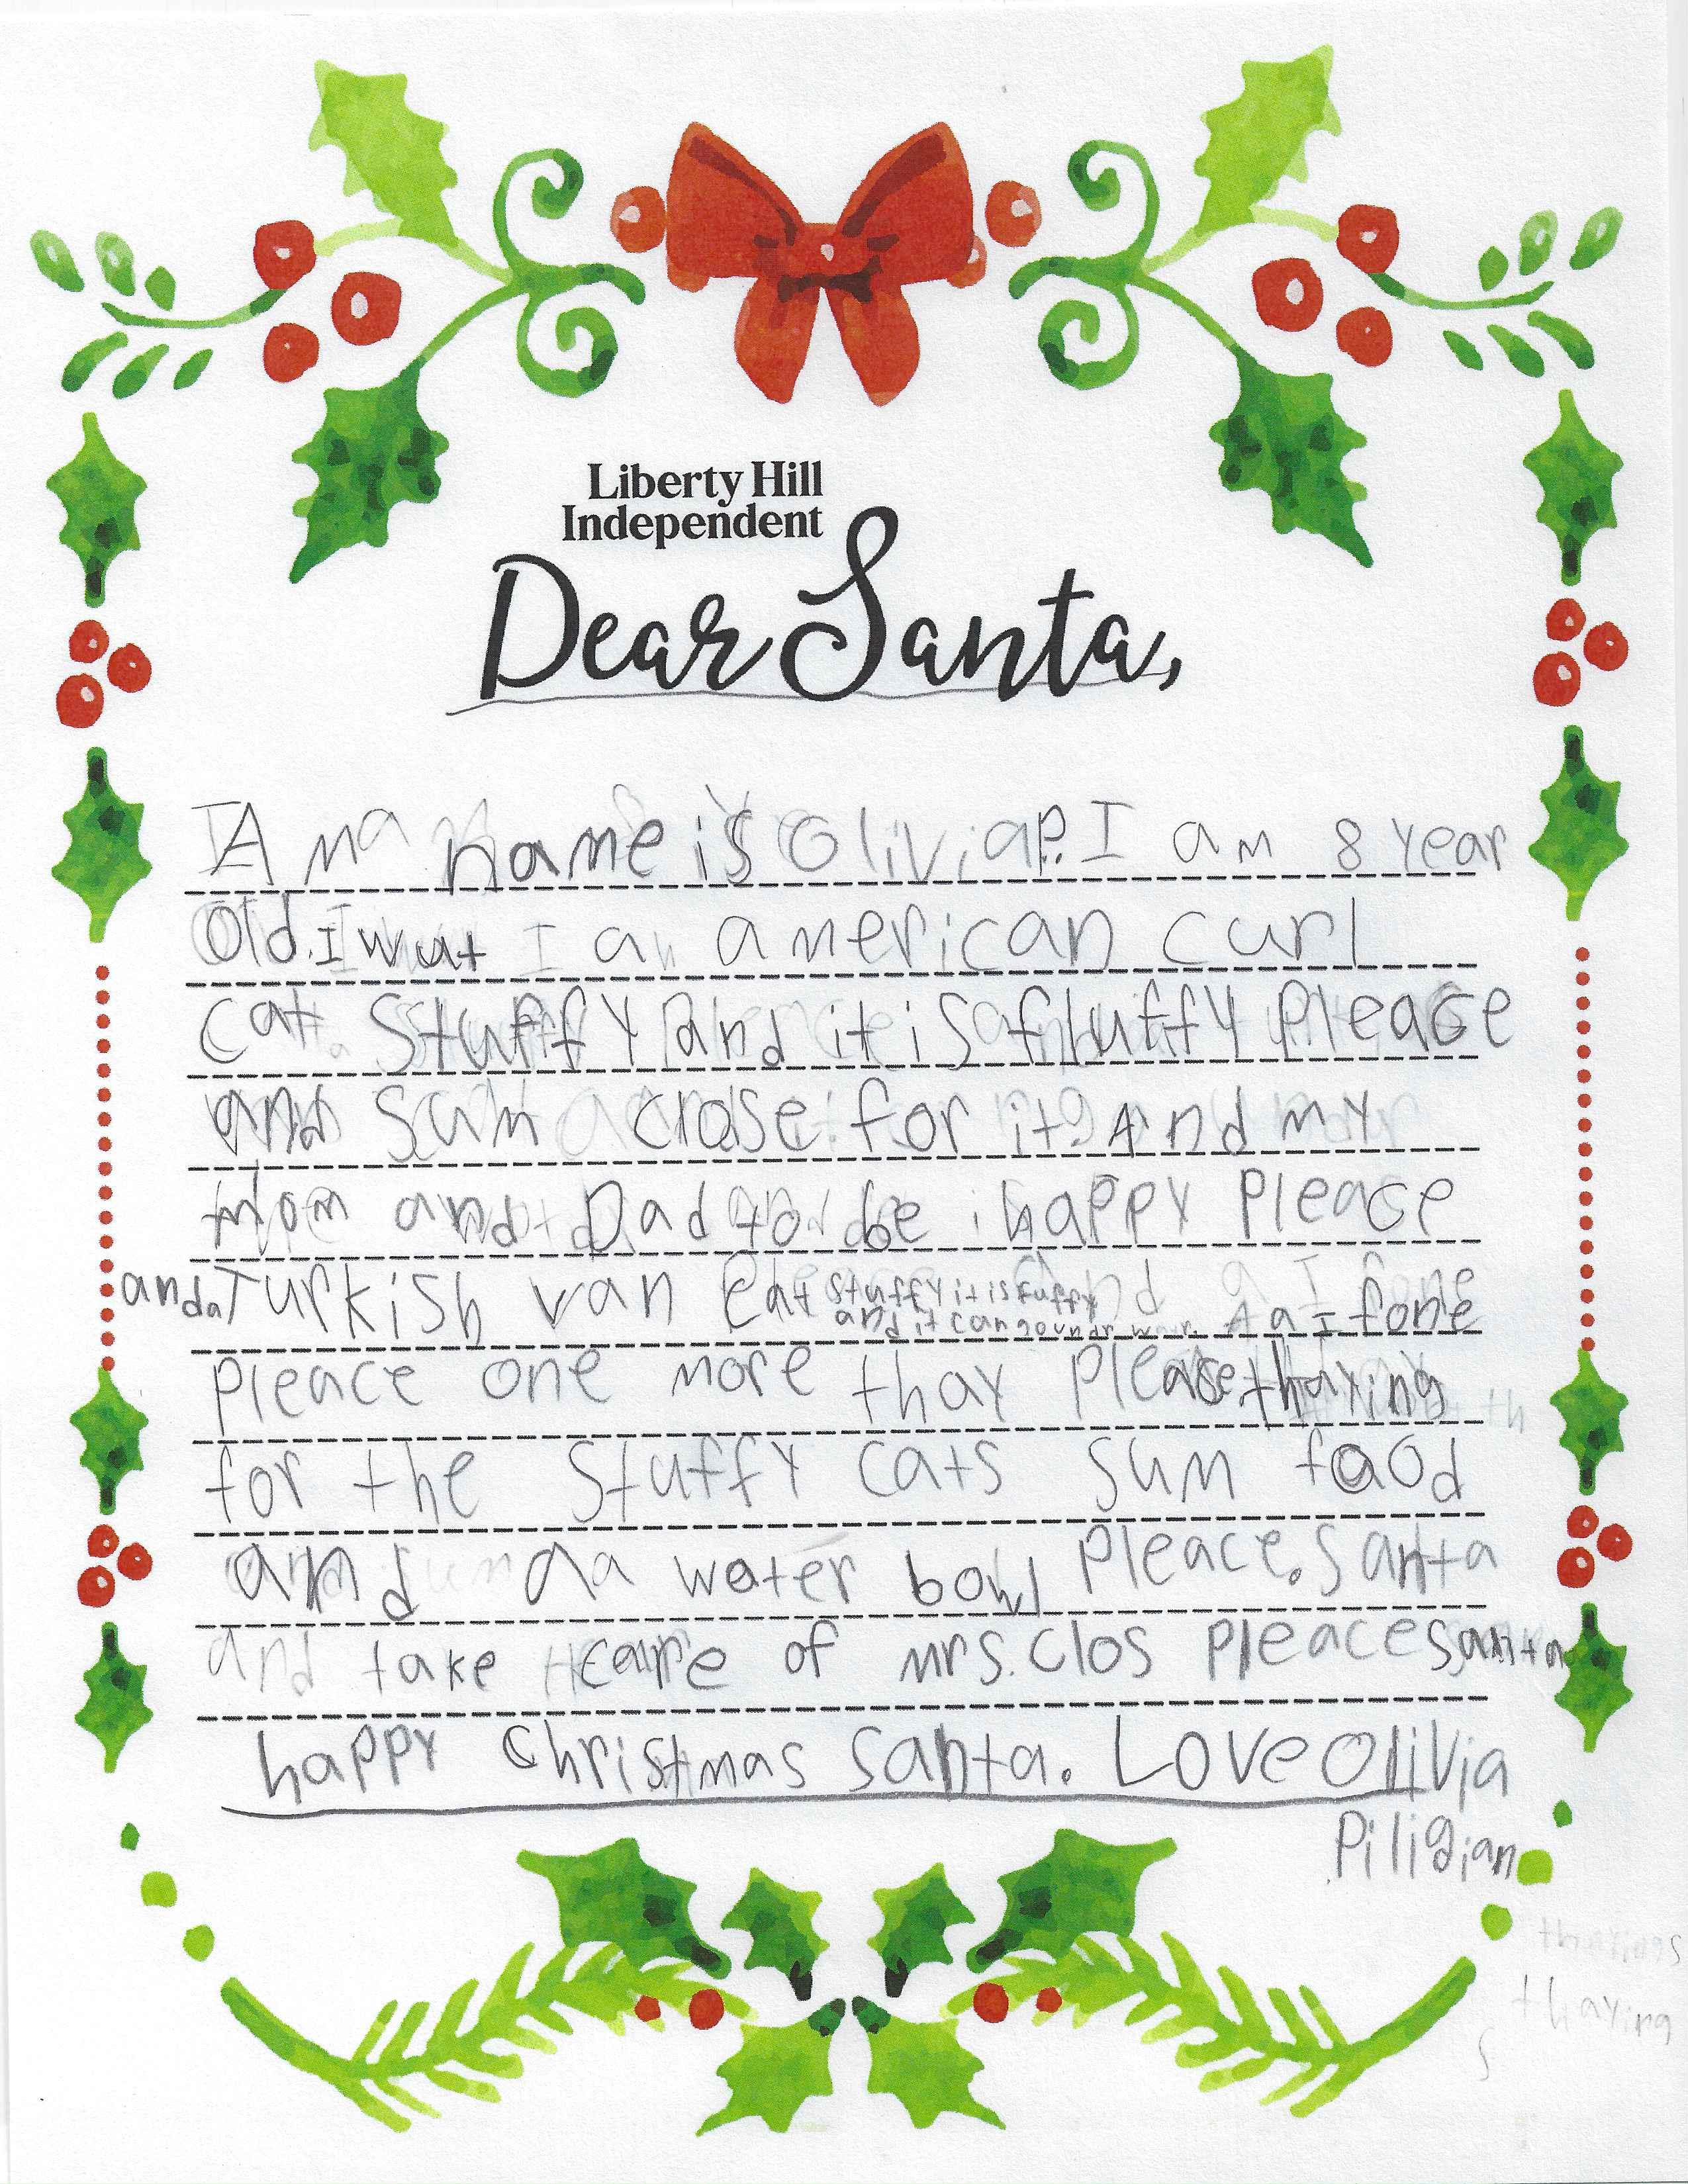 Liberty Hill
Independent
Dear Santa,
A ma name is Olivia P. I am 8 year
old. I wut a american curl
cat stuffy and it is fluffy Pleace
and sum close for it. And my
Mom and Dad to be happy Pleace
and a Turkish van Cat stuffy it is fuffy
and it can go undr watr. A a I fone
Pleace one more thay Please thaying
for the Stuffy cats sum food
and a water bowl Pleace. Santa
and take care of mrs. Clos Pleace santa
happy Christmas Santa. Love Olivia
Piligian
thayings
thaying
s